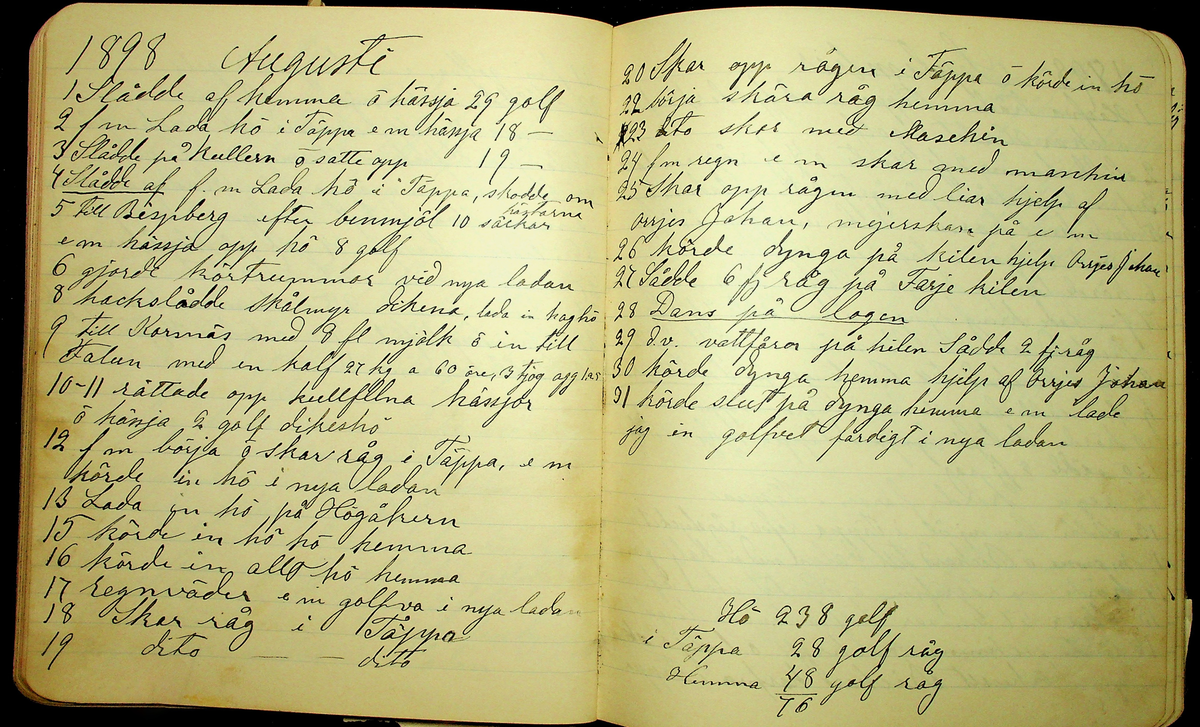 1898 Augusti
1 Slådde af hemma ö hässja 29 golf
2 f m Lada hö i Täppa e m hässja 18 —
3 Slådde på Kullern ö satte opp 19 —
4 Slådde af f. m Lada hö i Täppa, skodde om
hästarna
5 till Bispberg efter benmjöl 10 säckar
e m hässja opp hö 8 golf
6 gjorde körtrummor vid nya ladan
8 hackslådde skålmyr dikena, lada in haghö
9 till Kornäs med 8 fl mjölk ö in till
Falun med en kalf 27 kg a 60 öre, 3 tjog ägg
10-11 rättade opp kullfllna hässjor
ö hässja 2 golf dikeshö
12 f m börja ö skar råg i Täppa, e m
körde in hö i nya ladan
13 Lada in hö på Högåkern
15 körde in hö hö hemma
16 körde in allt hö hemma
17 regnväder e m golfva i nya ladan
18 Skar råg i Täppa
19 dito — dito
20 Skar opp rågen i Täppa ö körde in hö
22 börja skära råg hemma
23 dito skar med Maschin
24 f m regn e m skar med manhin
25 Skar opp rågen med liar hjelp af
Orrjes Johan, mejerskan på e m
26 körde dynga på kilen hjelp Orrjes Johan
27 Sådde 6 fj råg på Färje kilen
28 Dans på logen
29 d.v. vattfåror på kilen Sådde 2 fj råg
30 körde dynga hemma hjelp af Orrjes Johan
31 körde slut på dynga hemma e m lade
jag in golfvet färdigt i nya ladan
Hö 238 golf
i Täppa 28 golf råg
Hemma 48 golf råg
76